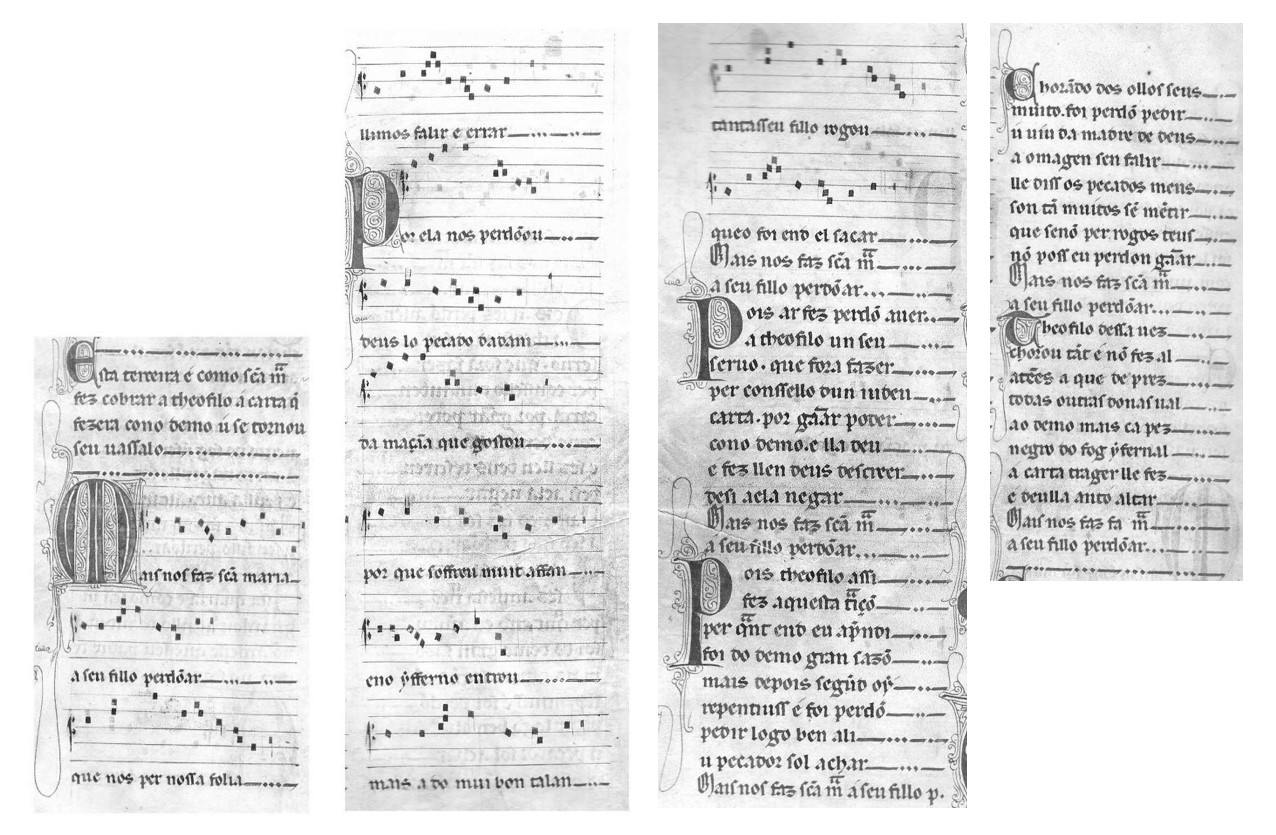 Esta terceira e como scã m̃a
fez cobrar a theofilo a carta q̃
fezera cono demo u se tornou
seu uassalo
Mais nos faz scã maria
a seu fillo perdõar
que nos per nossa folia
llimos falir e errar
Por ela nos perdõou
deus lo pecado dadam
da maçãa que gostou
por que soffreu muit affan
eno ỹfferno entrou
mais a do mui bon talan
tantasseu fillo rogou
queo foi end el sacar
Mais nos faz scã m̃a
a seu fillo perdõar
Pois ar fez perdõ auer
a theofilo un seu
seruo. que fora fazer
per conssello dun iudeu
carta. por gãar poder
cono demo. e lla deu
e fez llen deus descreer
desi aela negar
Mais nos faz scã m̃a
a seu fillo perdõar
Pois theofilo assi
fez aquesta t̃içõ
per q̃nt end eu ap̃ndi
foi do demo gran sazõ
mais depois segũd oẏ
repentiuss e foi perdõ
pedir logo ben ali
u pecador sol achar
Mais nos faz scã m̃a a seu fillo p.
Chorãdo dos ollos seus
muito. foi perdõ pedir
u uiu da madre de deus
a omagen sen falir
lle diss os pecados meus
son tã muitos sẽ mẽtir
que senõ per rogos teus
nõ poss eu perdon gãar
Mais nos faz scã m̃a
a seu fillo perdõar
Theofilo dessa uez
chorou tãt e nõ fez al
atẽes a que de prez
todas outras donas ual
ao demo mais ca pez
negro do fog ỹfernal
a carta trager lle fez
e deulla anto altar
Mais nos faz sa m̃a
a seu fillo perdõar